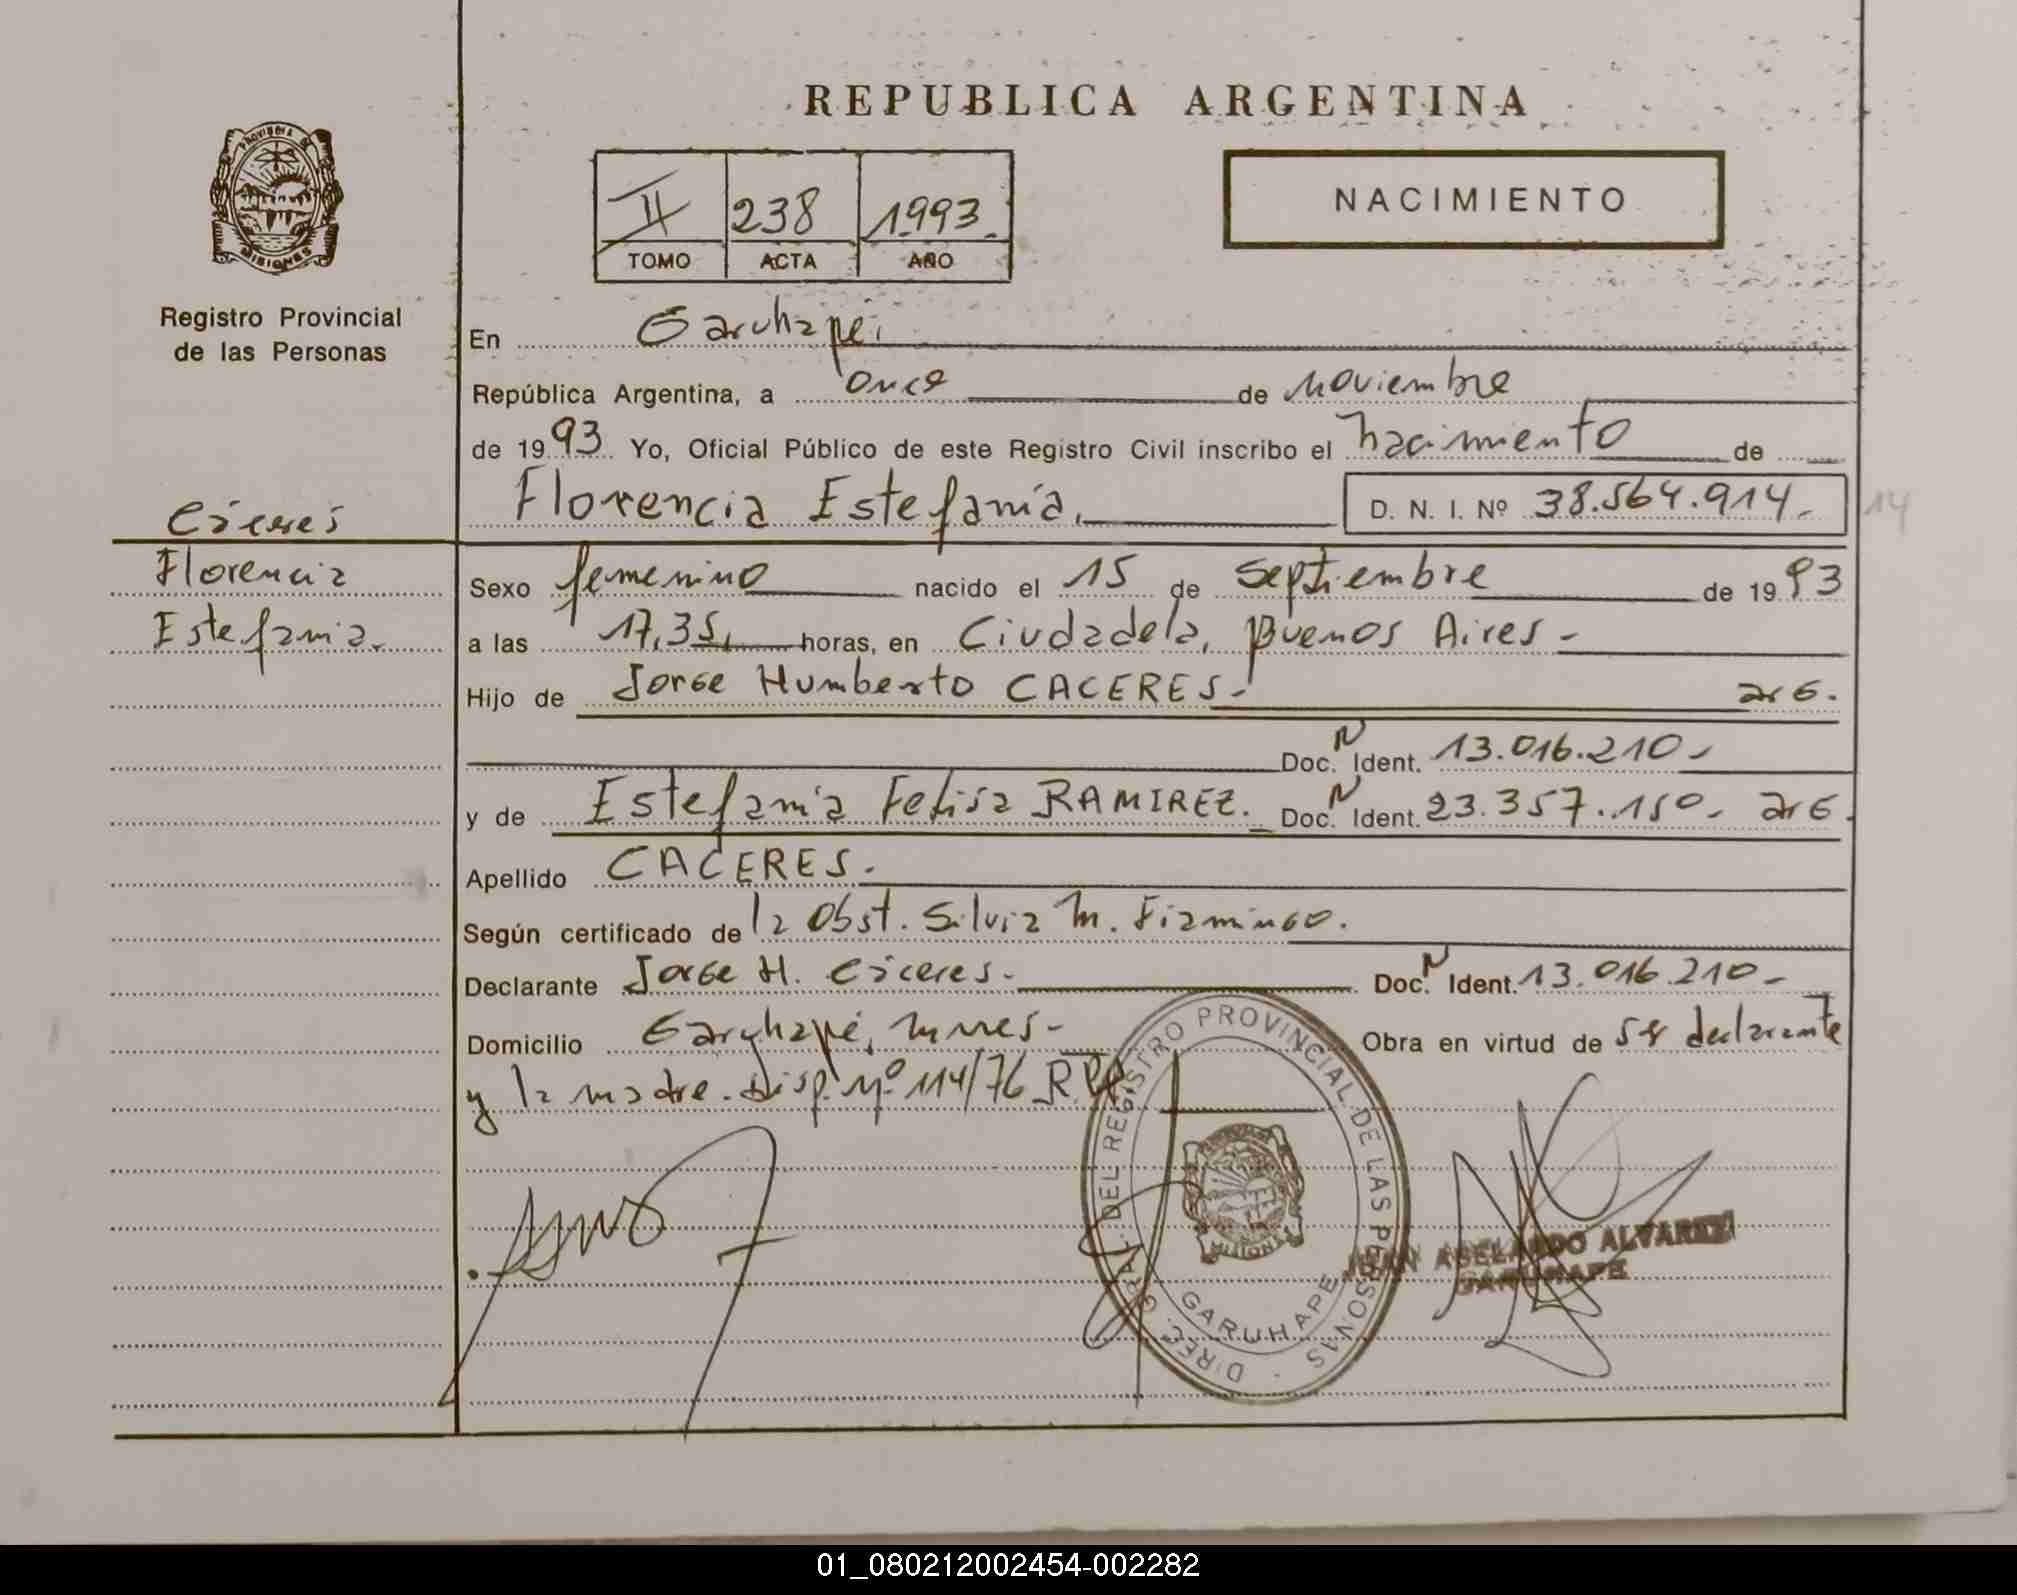 REPUBLICA ARGENTINA
PROVINCIA DE
MISIONES
Registro Provincial
de las Personas
II 238 1993
TOMO ACTA AÑO
NACIMIENTO
En Garuhapé,
República Argentina, a once de noviembre
de 1993 Yo, Oficial Público de este Registro Civil inscribo el nacimiento de
Florencia Estefanía, D. N. I. Nº 38.564.914.-
14
Cáceres
Florencia
Estefania.
Sexo femenino nacido el 15 de Septiembre de 1993
a las 17,35, horas, en Ciudadela, Buenos Aires -
Hijo de Jorge Humberto CACERES.- arg.
Doc. N Ident. 13.016.210-
y de Estefanía Felisa RAMIREZ. Doc. N Ident. 23.357.150- arg.
Apellido CACERES.
Según certificado de la Obst. Silvia M. Fiamingo.
Declarante Jorge H. Cáceres. Doc. N Ident. 13.016.210-
Domicilio Garuhapé, Mnes- Obra en virtud de ser declarante
y la madre. Disp. Nº 114/76 R.P.P.
DIREC. GRAL. DEL REGISTRO PROVINCIAL DE LAS PERSONAS
MISIONES
GARUHAPE
ABELARDO ALVAREZ
GARUHAPE
01_080212002454-002282